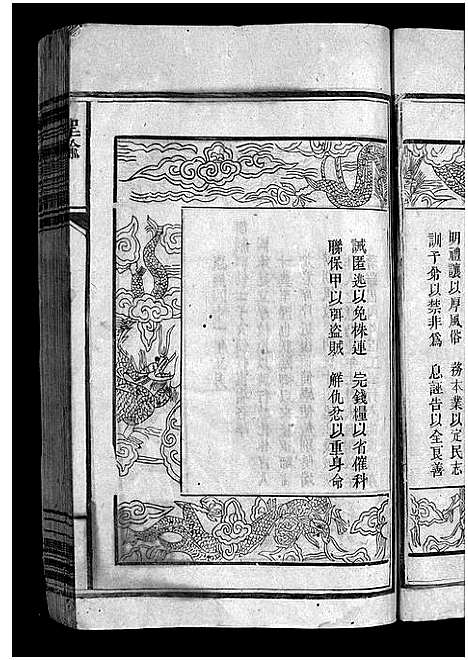 明禮讓以厚風俗　務本業以定民志
訓子弟以禁非爲　息誣告以全良善
誡匿逃以免株連　完錢糧以省催科
聯保甲以弭盜賊　解仇忿以重身命
聖諭